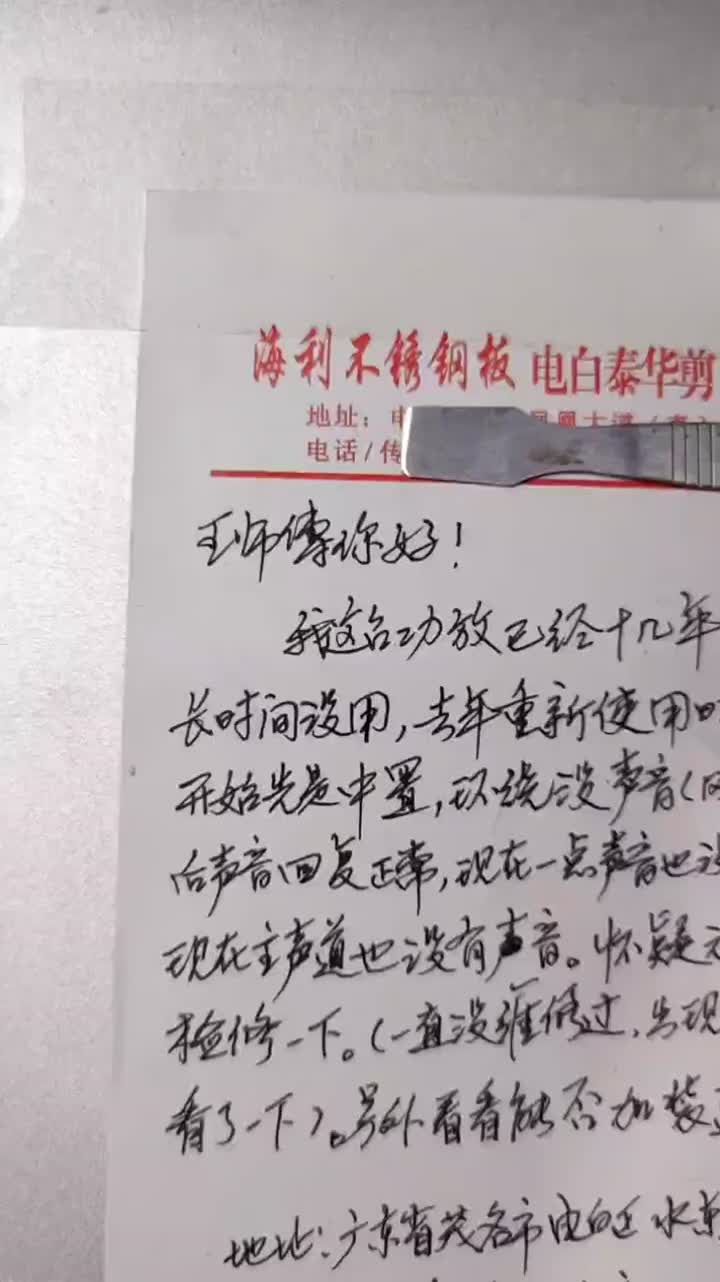 海利不锈钢板 电白泰华剪
地址：
电话/传
王师傅你好！
我这台功放已经十几年
长时间没用，去年重新使用时
开始先是中置，环绕没声音（
后声音回复正常，现在一点声音也没
现在主声道也没有声音。怀疑
检修一下。（一直没维修过，出现
看了一下）。另外看看能否加装
地址：广东省茂名市电白区水东